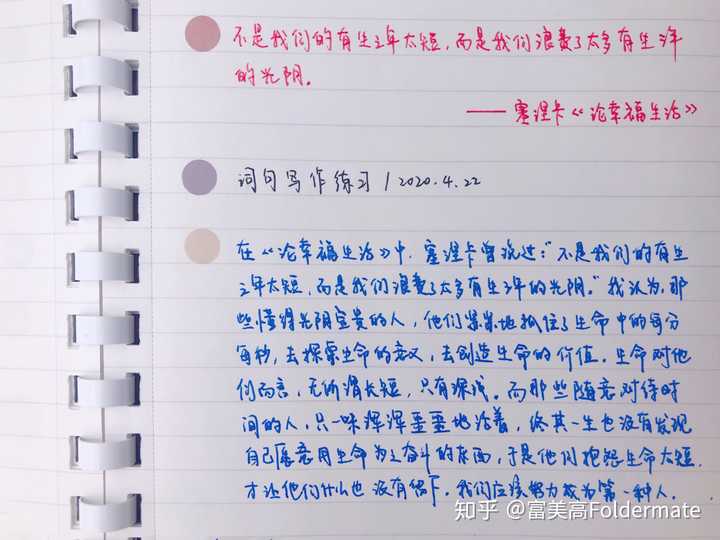 不是我们的有生之年太短，而是我们浪费了太多有生之年
的光阴。
——塞涅卡《论幸福生活》
词句写作练习/2020.4.22
在《论幸福生活》中，塞涅卡曾说过："不是我们的有生
之年太短，而是我们浪费了太多有生之年的光阴。"我认为，那
些懂得光阴宝贵的人，他们紧紧地抓住了生命中的每分
每秒，去探索生命的意义，去创造生命的价值。生命对他
们而言，无所谓长短，只有深浅。而那些随意对待时
间的人，只一味浑浑噩噩地活着，终其一生也没有发现
自己愿意用生命为之奋斗的东西，于是他们抱怨生命太短，
才让他们什么也没有留下。我们应该努力成为第一种人。
知乎 @富美高Foldermate